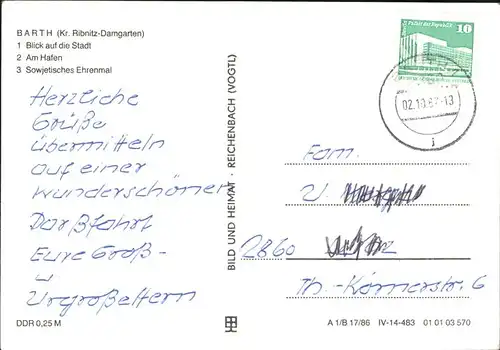 BARTH (Kr. Ribnitz-Damgarten)
1 Blick auf die Stadt
2 Am Hafen
3 Sowjetisches Ehrenmal
Herzliche
Grüße
übermitteln
auf einer
wunderschönen
Darßfahrt
Eure Groß-
u
Urgroßeltern
DDR 0,25 M
BILD UND HEIMAT · REICHENBACH (VOGTL)
10
02.10.87-13
i
Fam.
2860
Th.-Körnerstr. 6
A 1/B 17/86 IV-14-483 01 01 03 570